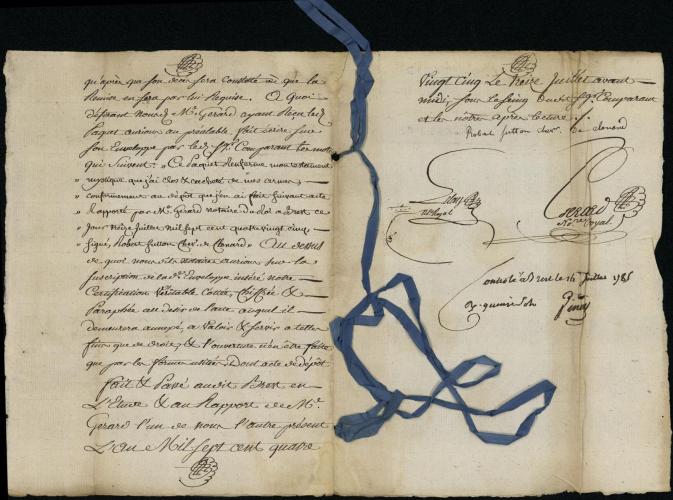 qu'après que son decès sera constaté et que la
Remise en sera par lui Requise. A Quoi
déférant nous d. Me. Gerard ayant Recu led.
Paquet aurions au préalable fait écrire sur
son Enveloppe par led. Sr. Comparant les mots
qui suivent: " Ce Paquet Renferme mon testament
" mystique que j'ai clos & cacheté de mes armes,
" conformement au dépôt que j'en ai fait suivant acte
" Rapporté par Me. Gerard notaire du Roi à Brest ce
" jour treize juillet mil sept cent quatre vingt cinq,
" signé, Robert Sutton Cher. de Clonard " Au dessus
de quoi nous dits notaire aurions sur la
suscription de lad. Enveloppe inséré notre
Certification Véritable, Cottée, Chiffrée &
Paraphée au desir de l'acte auquel il
demeurera annexé, a Valoir & servir a telle
fin que de droit, & l'ouverture n'en être faite
que par les formes usitées. Dont acte de dépôt
fait & Passé audit Brest en
L'Etude & au Rapport de Me.
Gerard l'un de nous l'autre présent
L'an Mil sept cent quatre
Vingt Cinq Le treize Juillet avant
midi sous le seing dudit Sr. Comparant
et les nôtres après lecture ./.
Robert sutton cher. de clonard
Nre. Royal
Gerard
Nore. royal
Controlé à Brest le 16 Juillet 1785
R. quinze sols